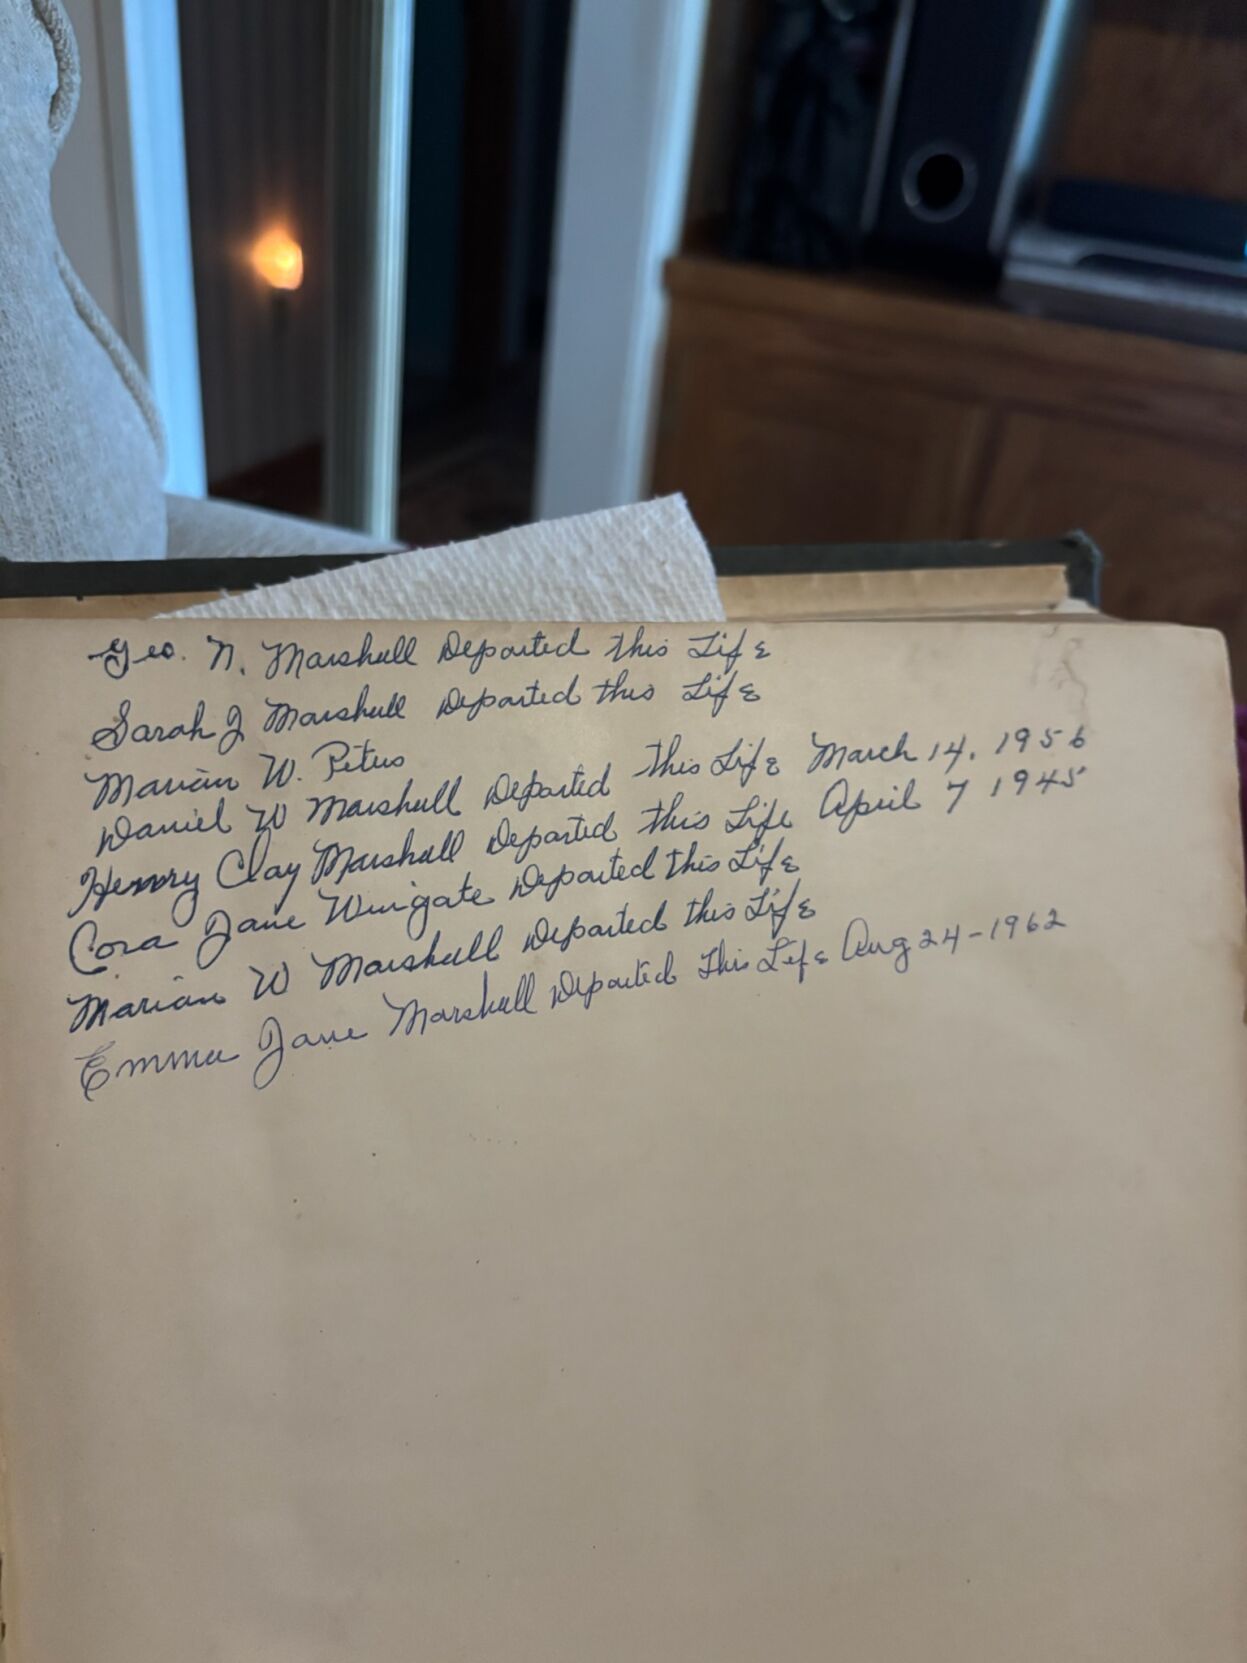 Geo. N. Marshall Departed this Life
Sarah J Marshall Departed this Life
Marian W. Petus
Daniel W Marshall Departed this Life March 14, 1956
Henry Clay Marshall Departed this Life April 7 1945
Cora Jane Wingate Departed this Life
Marian W Marshall Departed this Life
Emma Jane Marshall Departed This Life Aug 24-1962